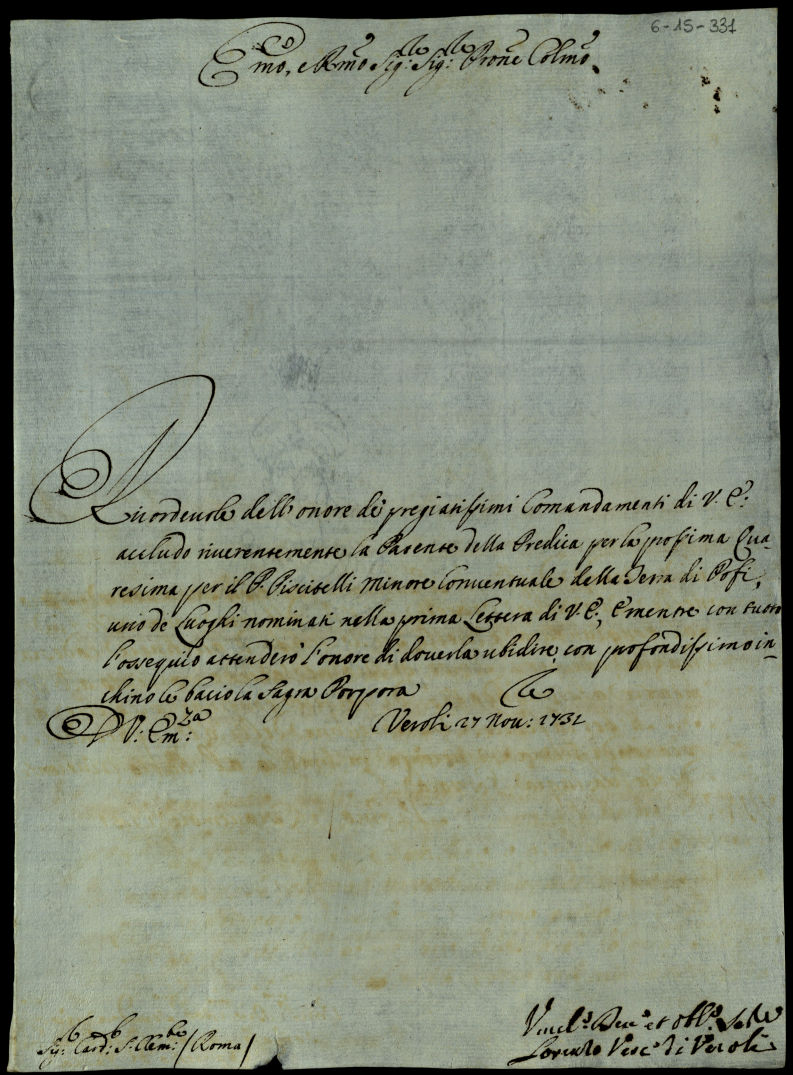 6-15-331
Emo, e Rmo Sig:re Sig:re Prone Colmo
Ricordevole dell'onore de' pregiatissimi Comandamenti di V. E:
accludo riverentemente la Patente della Predica per la prossima Qua=
resima per il P. Piscitelli Minore Conventuale della Terra di Pofi,
uno de' Luoghi nominati nella prima Lettera di V. E., E mentre con tutto
l'ossequio attenderò l'onore di doverla ubidire, con profondissimo in=
chino le bacio la Sagra Porpora
D V: Em:za
Veroli 27 Nov: 1731
Sig:r Card:l S. Clem:te (Roma)
Umil:o Dev:o et Obl:o Se:re
Lorenzo Vesc:o di Veroli